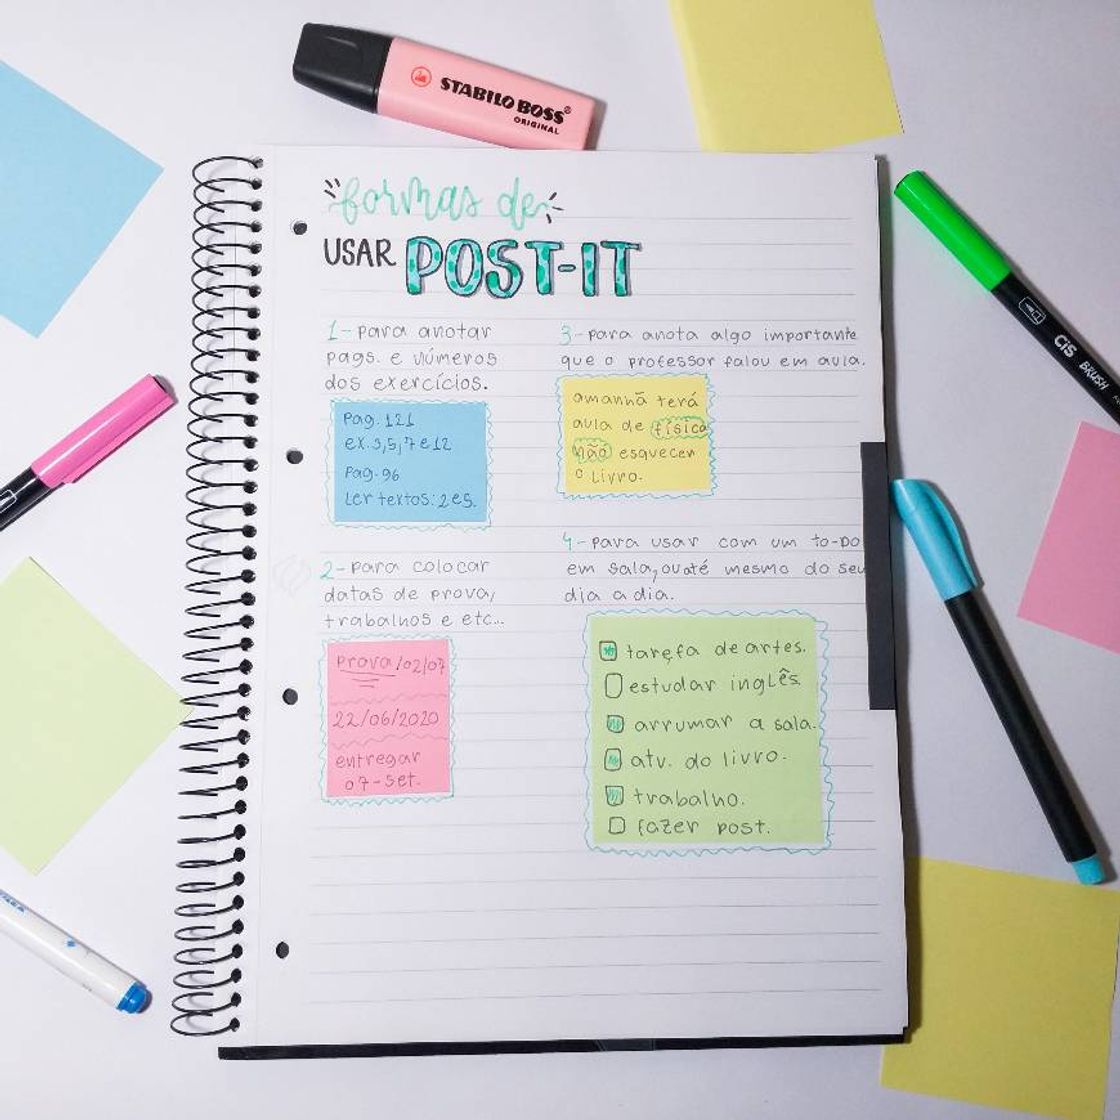 STABILO BOSS®
ORIGINAL
formas de
USAR POST-IT
1- para anotar
pags. e números
dos exercícios.
Pag. 121
ex. 3,5,7 e 12
Pag. 96
Ler textos: 2 e 5.
2- para colocar
datas de prova,
trabalhos e etc...
Prova/02/07
22/06/2020
entregar
07-set.
3- para anota algo importante
que o professor falou em aula.
amanhã terá
aula de física
não esquecer
o livro.
4- para usar com um to-do
em sala, ou até mesmo do seu
dia a dia.
tarefa de artes.
estudar inglês
arrumar a sala.
atv. do livro.
trabalho.
fazer post.
CiS BRUSH